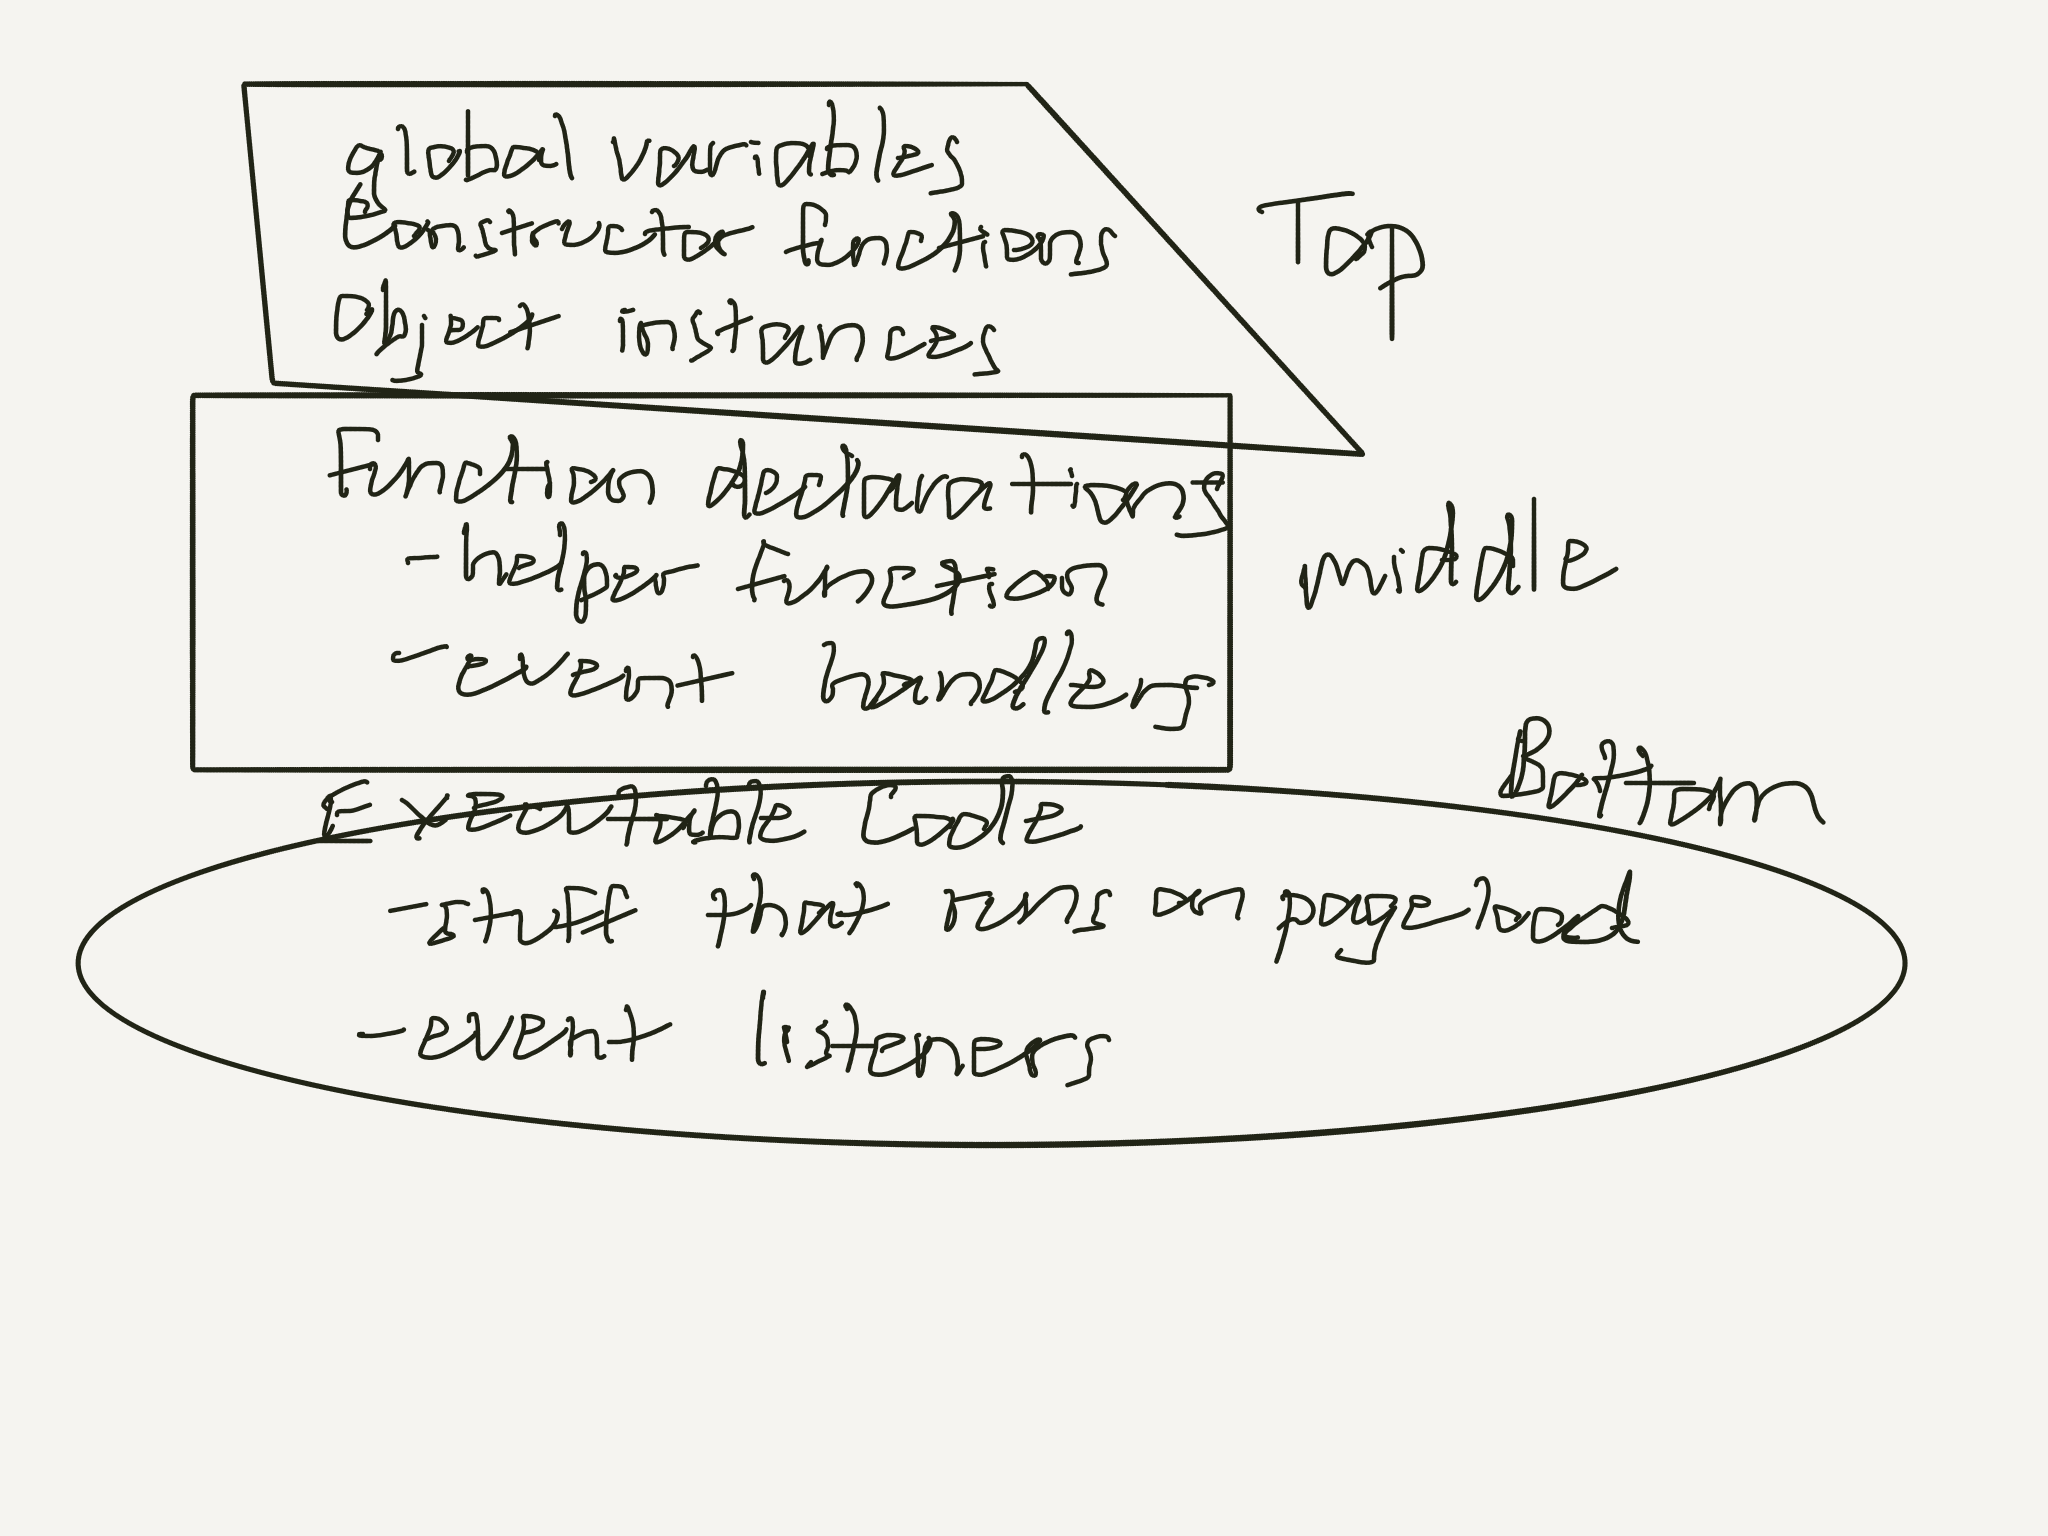 global variables
Constructor functions
Object instances
Top
Function declarations
- helper function
- event handlers
middle
Bottom
Executable Code
- stuff that runs on page load
- event listeners